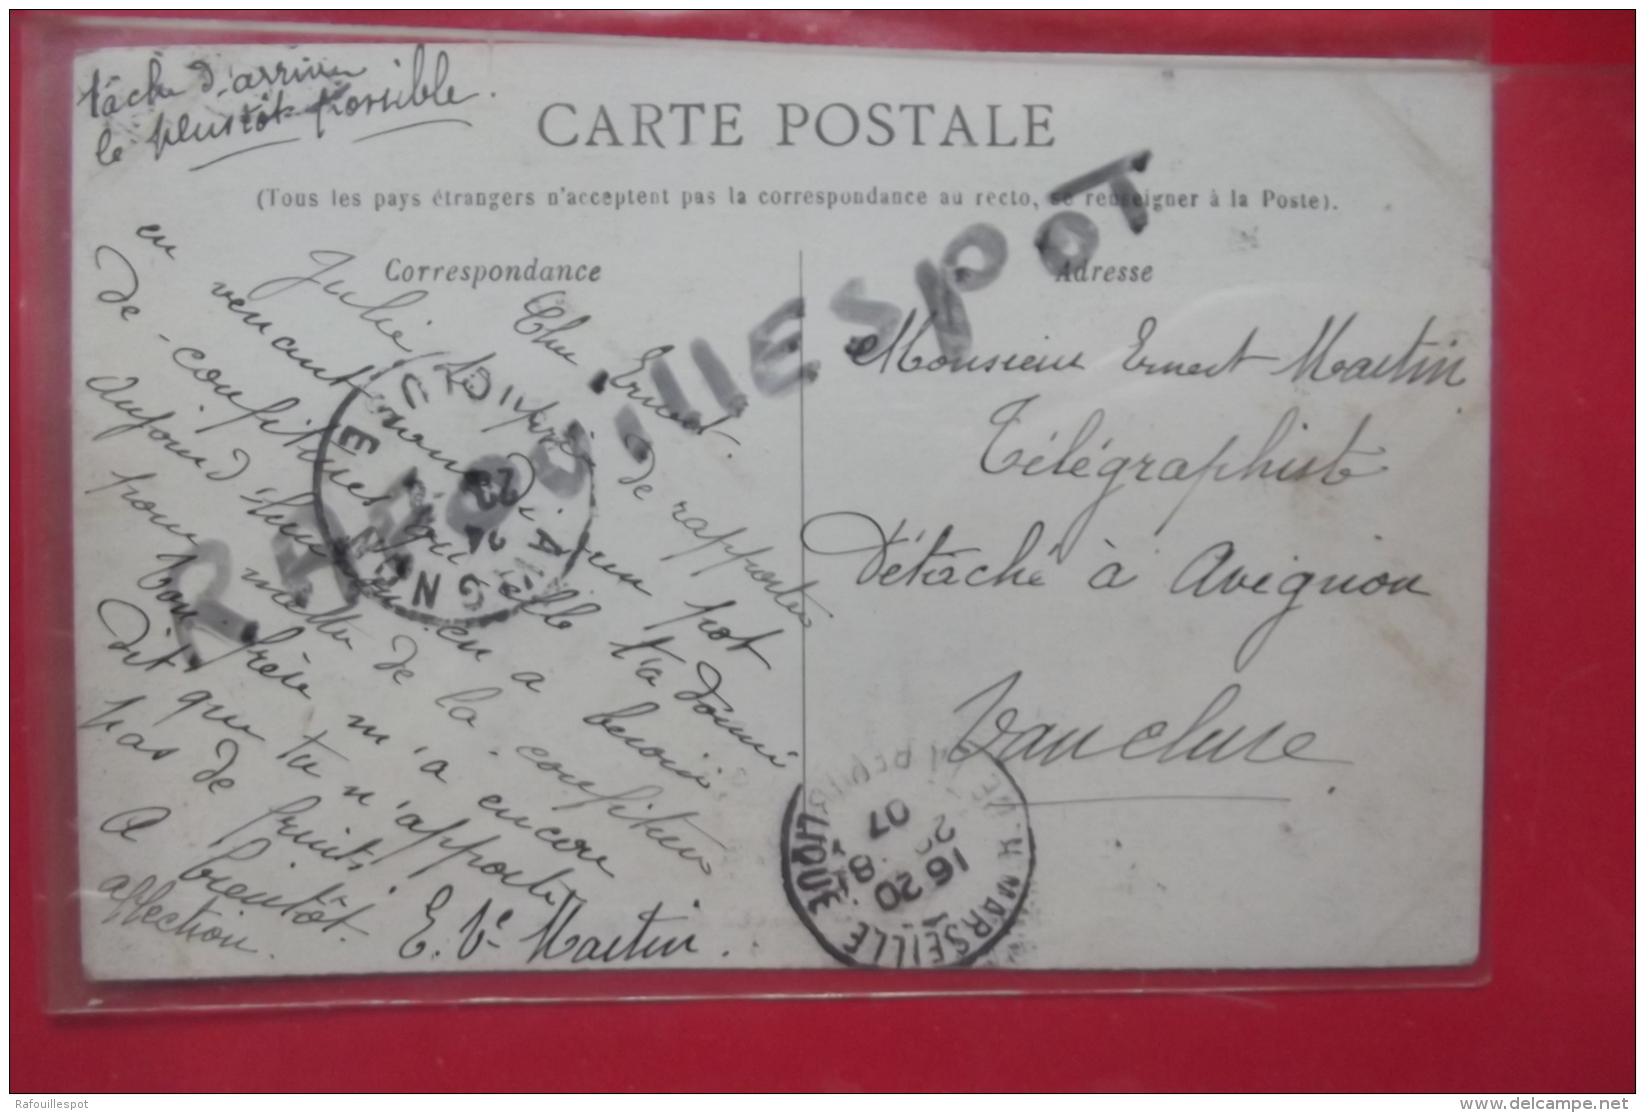 tâche d'arriver
le plustôt possible.
CARTE POSTALE
(Tous les pays étrangers n'acceptent pas la correspondance au recto, se renseigner à la Poste).
Correspondance
Adresse
Cher Ernest.
Julie te prie de rapporter
en venant un pot
de confitures qu'elle t'a donné
aujourd'hui en a besoin
pour mettre de la confiture
ton frère m'a encore
dit que tu n'apportes
pas de fruits
A bientôt.
affection.
E. Ve Martin.
Monsieur Ernest Martin
Télégraphiste
Détaché à Avignon
Vaucluse
MARSEILLE
16 20
07
RAFOUILLESPOT
Rafouillespot
delcampe.net